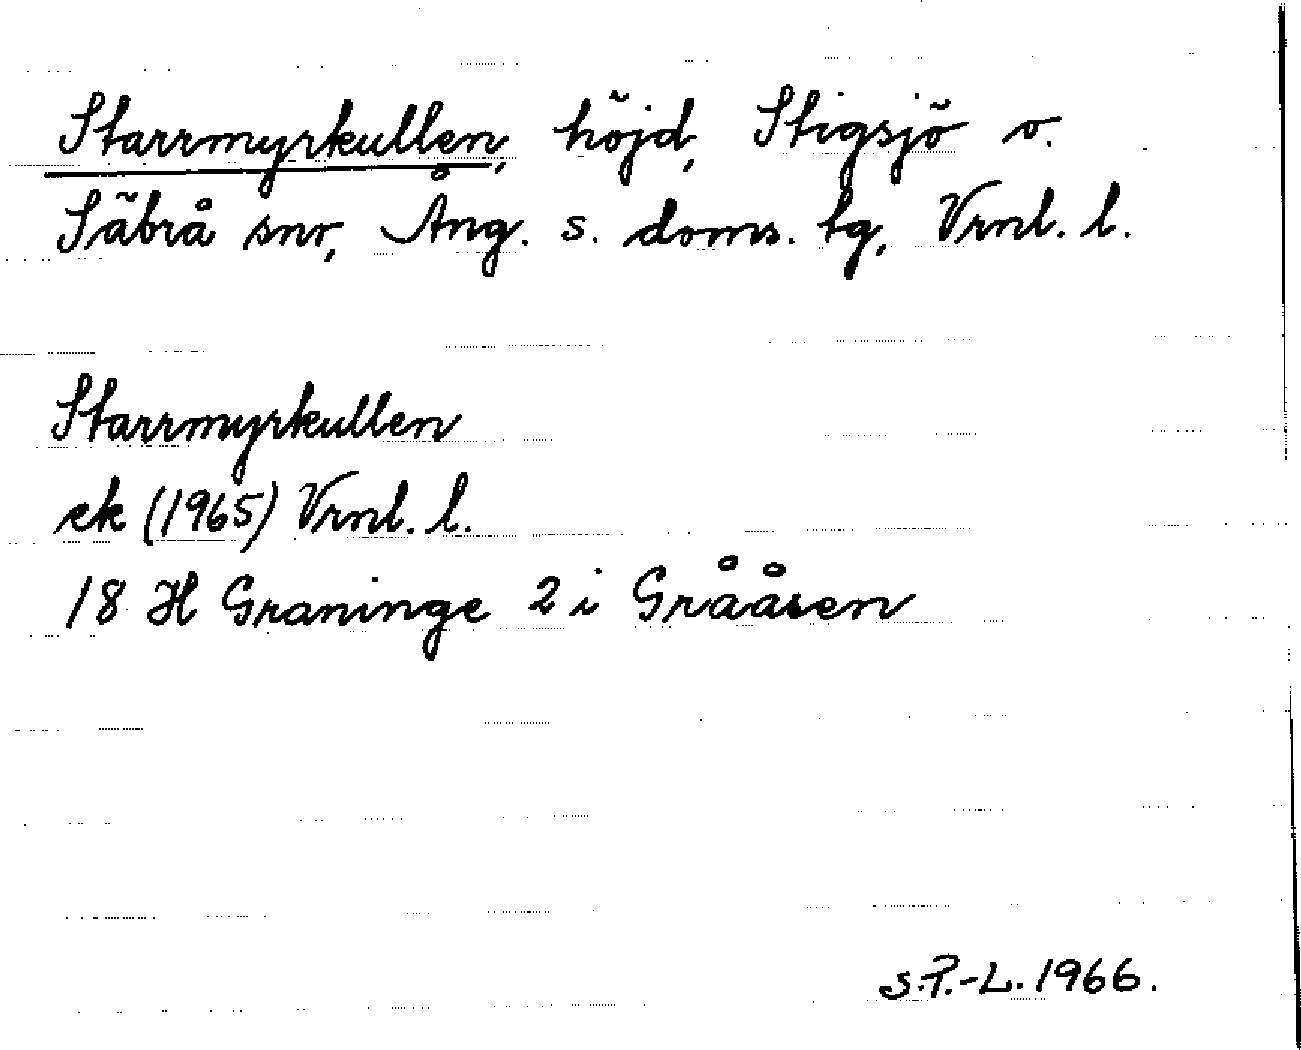 Starrmyrkullen, höjd, Stigsjö o.
Säbrå snr, Ång. s. doms. tg, Vrnl. l.
Starrmyrkullen
ek (1965) Vrnl. l.
18 H Graninge 2 i Grååsen
S.P.-L. 1966.